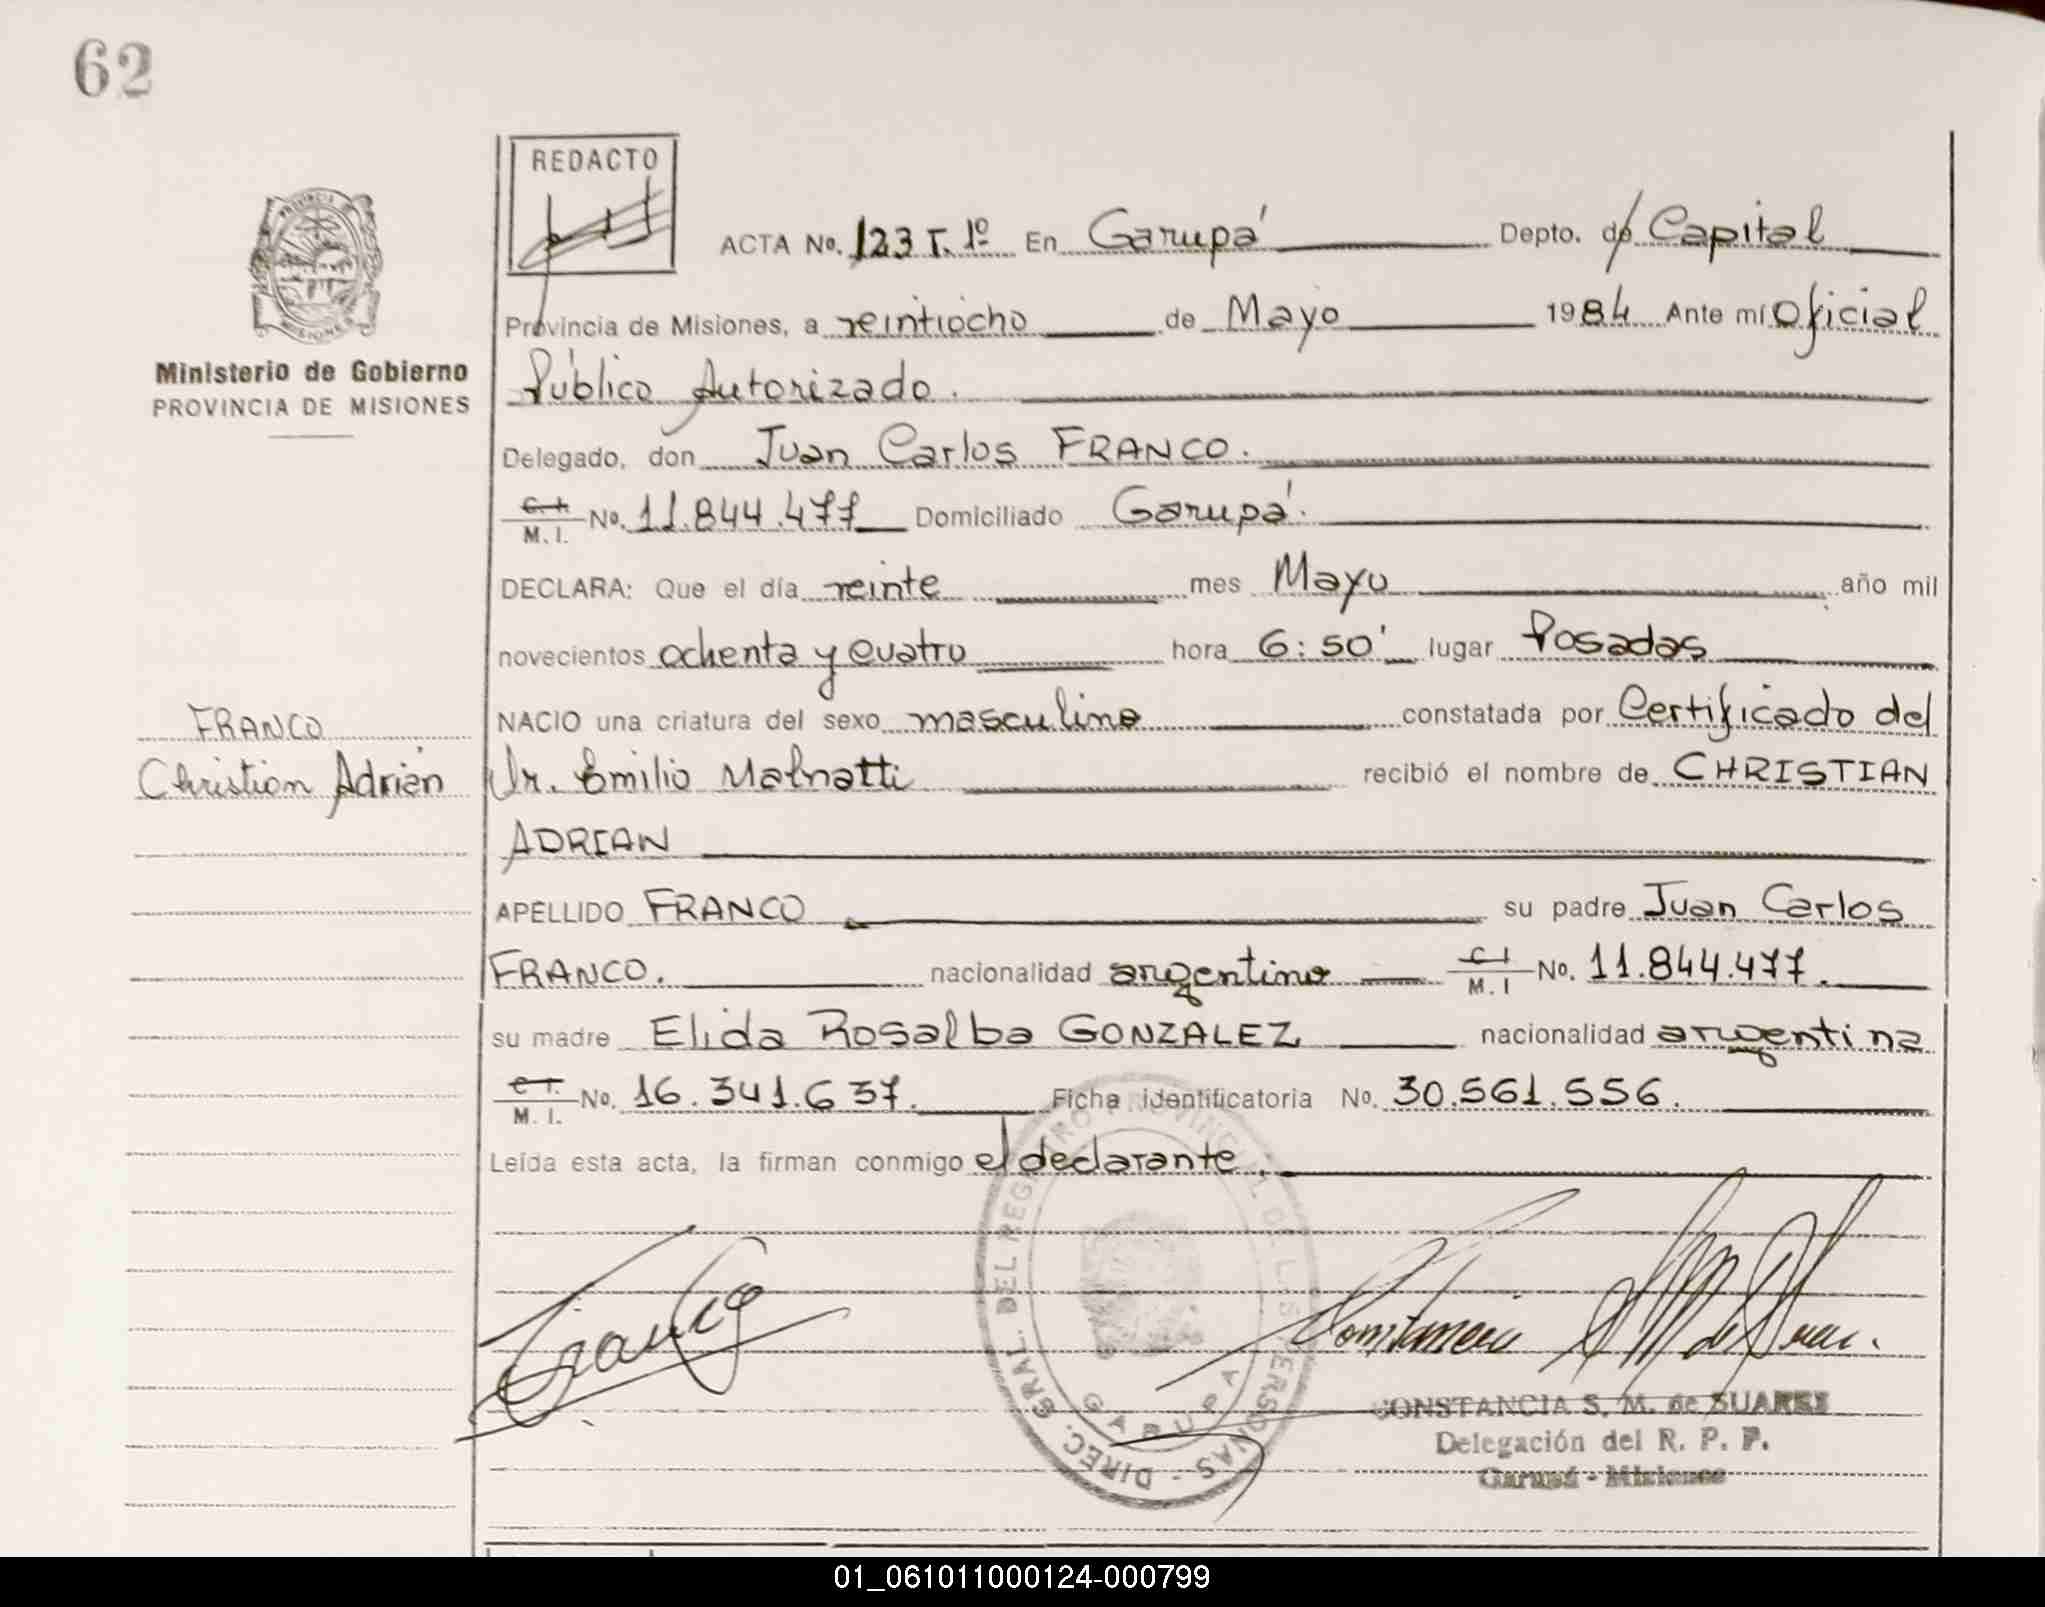 62
REDACTO
ACTA No. 123 T. 1º En Garupá Depto. de Capital
Provincia de Misiones, a veintiocho de Mayo 1984 Ante mí Oficial
Público Autorizado.
Ministerio de Gobierno
PROVINCIA DE MISIONES
Delegado, don Juan Carlos FRANCO.
C. I. M. I. No. 11.844.477 Domiciliado Garupá.
DECLARA: Que el día veinte mes Mayo año mil
novecientos ochenta y cuatro hora 6:50' lugar Posadas
FRANCO
Christian Adrián
NACIO una criatura del sexo masculino constatada por Certificado del
Dr. Emilio Malnatti recibió el nombre de CHRISTIAN
ADRIAN
APELLIDO FRANCO su padre Juan Carlos
FRANCO. nacionalidad argentino C I M. I No. 11.844.477.
su madre Elida Rosalba GONZALEZ nacionalidad argentina
C I. M. I. No. 16.341.637. Ficha identificatoria No. 30.561.556.
Leída esta acta, la firman conmigo el declarante.
DIREC. GRAL. DEL REGISTRO PROVINCIAL DE LAS PERSONAS -
GARUPA
Franco
CONSTANCIA S. M. de SUAREZ
Delegación del R. P. P.
Garupá - Misiones
01_061011000124-000799